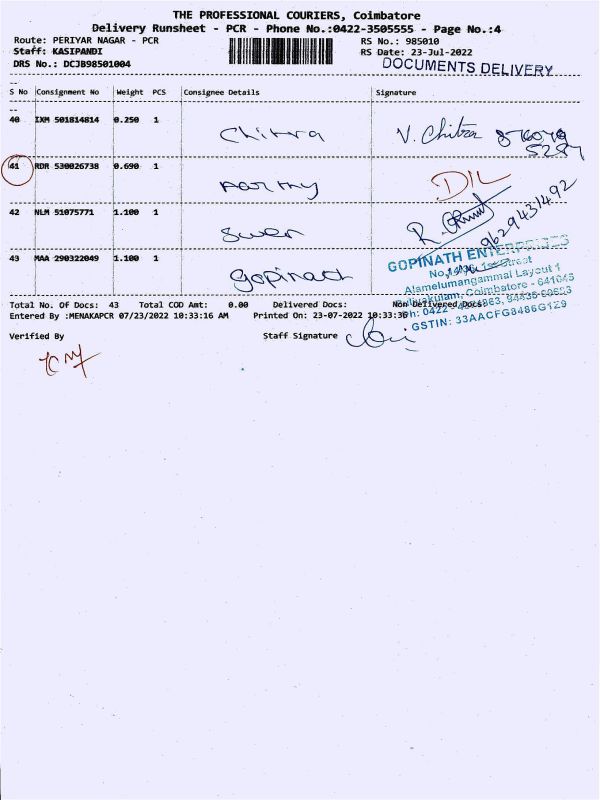 THE PROFESSIONAL COURIERS, Coimbatore
Delivery Runsheet - PCR - Phone No.:0422-3505555 - Page No.:4
Route: PERIYAR NAGAR - PCR RS No.: 985010
Staff: KASIPANDI RS Date: 23-Jul-2022
DRS No.: DCJB98501004 DOCUMENTS DELIVERY
S No Consignment No Weight PCS Consignee Details Signature
40 IXM 501814814 0.250 1 Chitra V. Chitra
41 RDR 530026738 0.690 1 DIL
42 NLM 51075771 1.100 1 R. 9629431492
43 MAA 290322049 1.100 1 Gopinath
GOPINATH ENTERPRISES
1st Street
Alamelumangammal Layout
Coimbatore - 641045
GSTIN: 33AACFG8486G1Z9
Total No. Of Docs: 43 Total COD Amt: 0.00 Delivered Docs: Non Delivered Docs:
Entered By :MENAKAPCR 07/23/2022 10:33:16 AM Printed On: 23-07-2022 10:33:36
Verified By Staff Signature